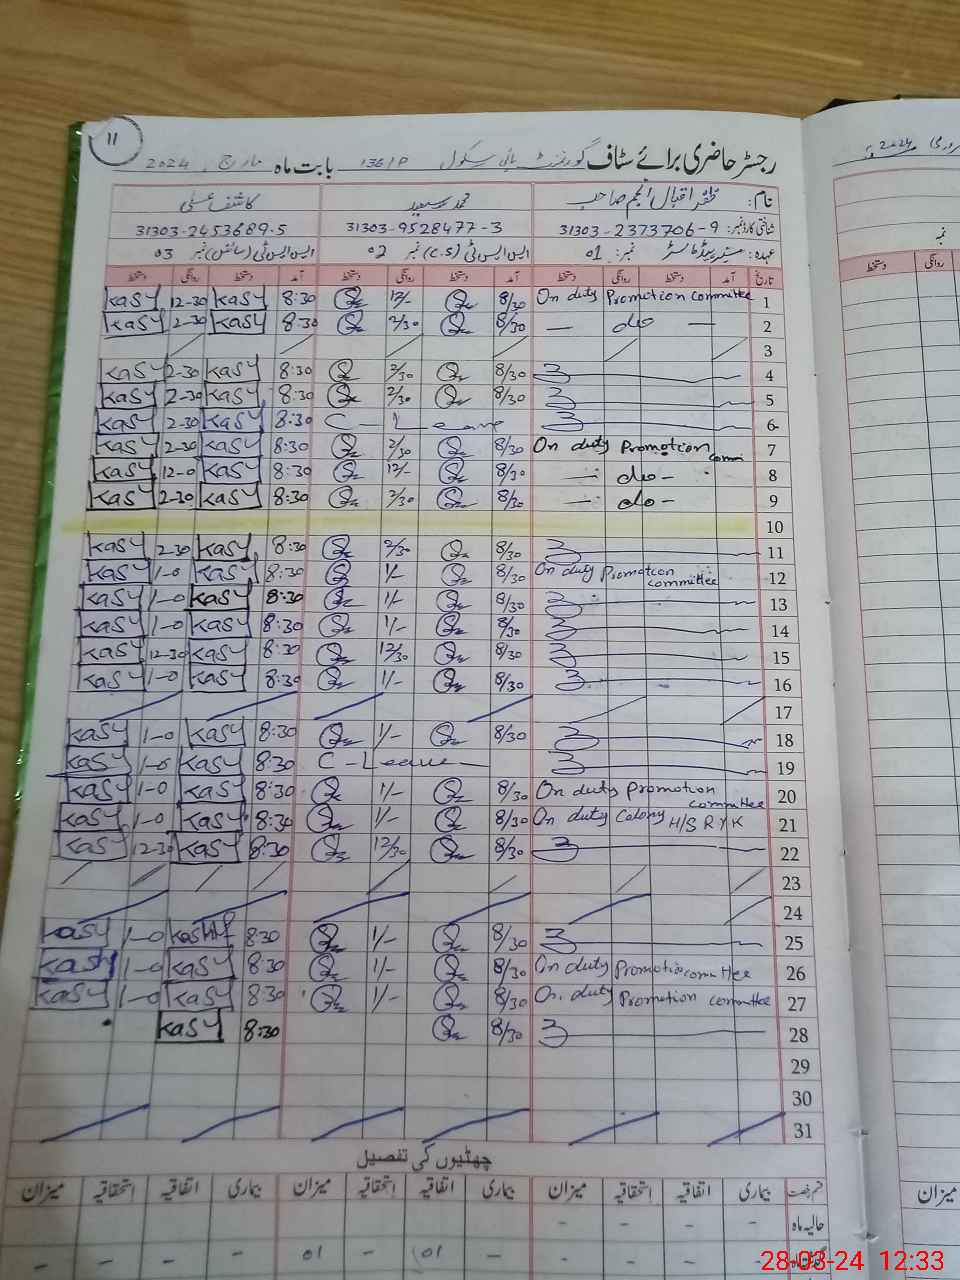 11
رجسٹر حاضری برائے سٹاف گورنمنٹ ہائی سکول 136/P بابت ماہ مارچ 2024
نام: ظفر اقبال انجم صاحب محمد سعید کاشف علی
شناختی کارڈ نمبر: 31303-2373706-9 31303-9528477-3 31303-2453689-5
عہدہ: سینئر ہیڈ ماسٹر نمبر: 01 ایس ایس ٹی (C.S) نمبر 02 ایس ایس ٹی (سائنس) نمبر 03
تاریخ آمد دستخط روانگی دستخط آمد دستخط روانگی دستخط آمد دستخط روانگی دستخط
KaSY 12-30 KaSY 8:30 12/- 8/30 On duty Promotion committee 1
KaSY 2-30 KaSY 8:30 2/30 8/30 — do — 2
3
KaSY 2-30 KaSY 8:30 2/30 8/30 4
KaSY 2-30 KaSY 8:30 2/30 8/30 5
KaSY 2-30 KaSY 8:30 C - Leave 6
KaSY 2-30 KaSY 8:30 2/30 8/30 On duty Promotion commi 7
KaSY 12-0 KaSY 8:30 12/- 8/30 — do - 8
KaSY 2-30 KaSY 8:30 2/30 8/30 — do - 9
10
KaSY 2-30 KaSY 8:30 2/30 8/30 11
KaSY 1-0 KaSY 8:30 1/- 8/30 On duty Promotion committee 12
KaSY 1-0 KaSY 8:30 1/- 8/30 13
KaSY 1-0 KaSY 8:30 1/- 8/30 14
KaSY 12-30 KaSY 8:30 12/30 8/30 15
KaSY 1-0 KaSY 8:30 1/- 8/30 16
17
KaSY 1-0 KaSY 8:30 1/- 8/30 18
KaSY 1-0 KaSY 8:30 C - Leave — 19
KaSY 1-0 KaSY 8:30 1/- 8/30 On duty promotion committee 20
KaSY 1-0 KaSY 8:30 1/- 8/30 On duty Colony H/S R Y K 21
KaSY 12-30 KaSY 8:30 12/30 8/30 22
23
24
KaSY 1-0 KaSHif 8:30 1/- 8/30 25
KaSY 1-0 KaSY 8:30 1/- 8/30 On duty Promotion committee 26
KaSY 1-0 KaSY 8:30 1/- 8/30 On duty Promotion committee 27
KaSY 8:30 8/30 28
29
30
31
چھٹیوں کی تفصیل
قسم رخصت بیماری اتفاقیہ استحقاقیہ میزان بیماری اتفاقیہ استحقاقیہ میزان بیماری اتفاقیہ استحقاقیہ میزان
حالیہ ماہ - - - -
- - - - - 01 - 01 - - - -
2024
نمبر
روانگی دستخط
میزان
28-03-24 12:33